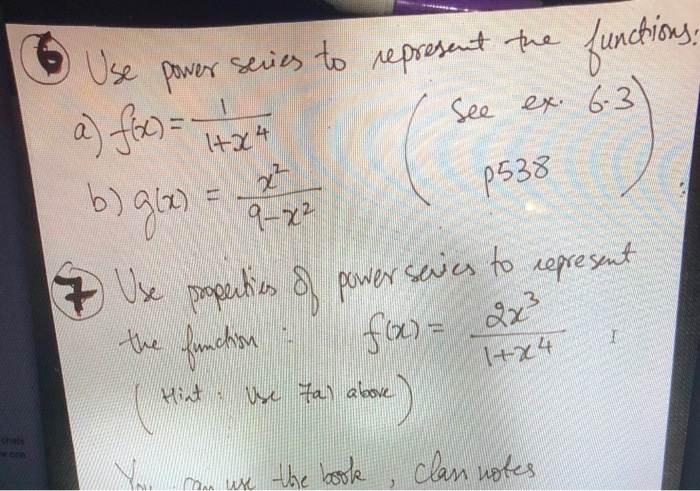 6 Use power series to represent the functions:
a) f(x) = 1/(1+x^4) (See ex. 6.3
b) g(x) = x^2/(9-x^2) p538)
7 Use properties of power series to represent
the function : f(x) = 2x^3/(1+x^4)
(Hint : Use 7a) above)
You can use the book , Class notes